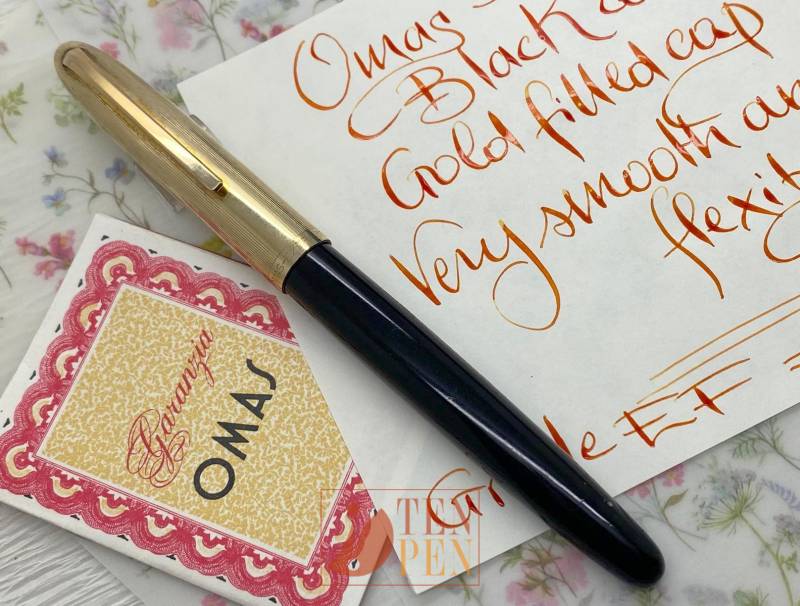 Omas
Black
Gold filled cap
Very smooth
flexi
EF
Garanzia
OMAS
TEN
PEN